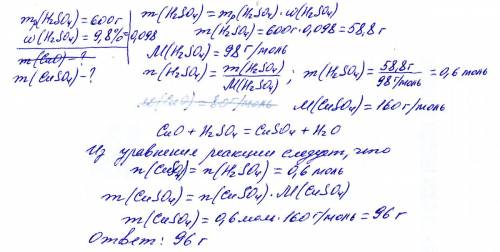 mр(H₂SO₄)=600г
ω(H₂SO₄)=9,8%=0,098
m(CuO)-?
m(CuSO₄)-?
m(H₂SO₄)=mр(H₂SO₄)·ω(H₂SO₄)
m(H₂SO₄)=600г·0,098=58,8г
M(H₂SO₄)=98г/моль
n(H₂SO₄)=m(H₂SO₄)/M(H₂SO₄); n(H₂SO₄)=58,8г/98г/моль=0,6 моль
M(CuO)=80г/моль M(CuSO₄)=160г/моль
CuO+H₂SO₄=CuSO₄+H₂O
Из уравнения реакции следует, что
n(CuSO₄)=n(H₂SO₄)=0,6 моль
m(CuSO₄)=n(CuSO₄)·M(CuSO₄)
m(CuSO₄)=0,6 моль·160г/моль=96г
Ответ: 96г